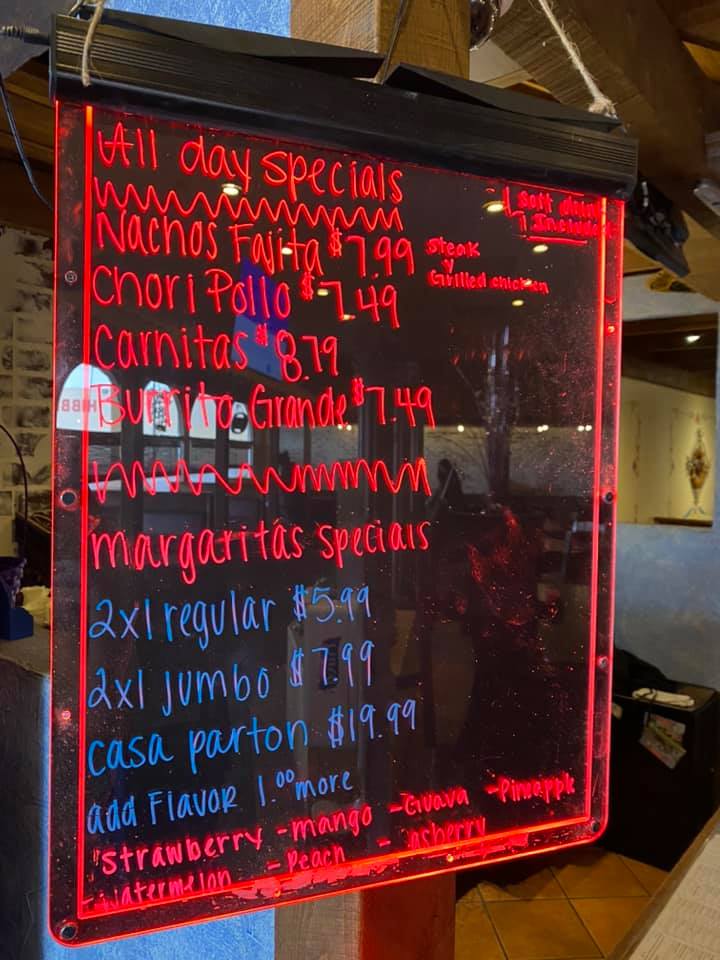 All day specials
1 soft drink
Included
Nachos Fajita $7.99
Steak
y
Grilled chicken
Chori Pollo $7.49
Carnitas $8.79
Burrito Grande $7.49
margaritás specials
2x1 regular $5.99
2x1 jumbo $7.99
casa parton $19.99
add Flavor 1.00 more
Strawberry - mango - Guava - Pineapple
Watermelon - Peach -